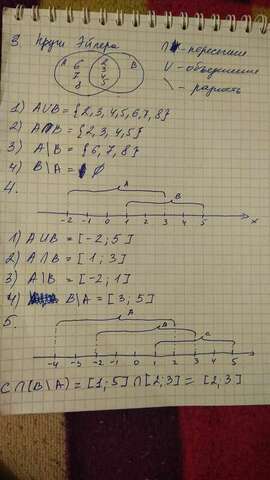 3. Круги Эйлера
∩ - пересечение
A 6 7 8 2 3 4 5 B
∪ - объединение
\ - разность
1) A∪B = {2,3,4,5,6,7,8}
2) A∩B = {2,3,4,5}
3) A\B = {6,7,8}
4) B\A = ∅
4.
A
B
-2 -1 0 1 2 3 4 5 x
1) A∪B = [-2; 5]
2) A∩B = [1; 3]
3) A\B = [-2; 1]
4) B\A = [3; 5]
5.
A
B
C
-4 -3 -2 -1 0 1 2 3 4 5
C∩(B\A) = [1;5]∩[2;3] = [2;3]